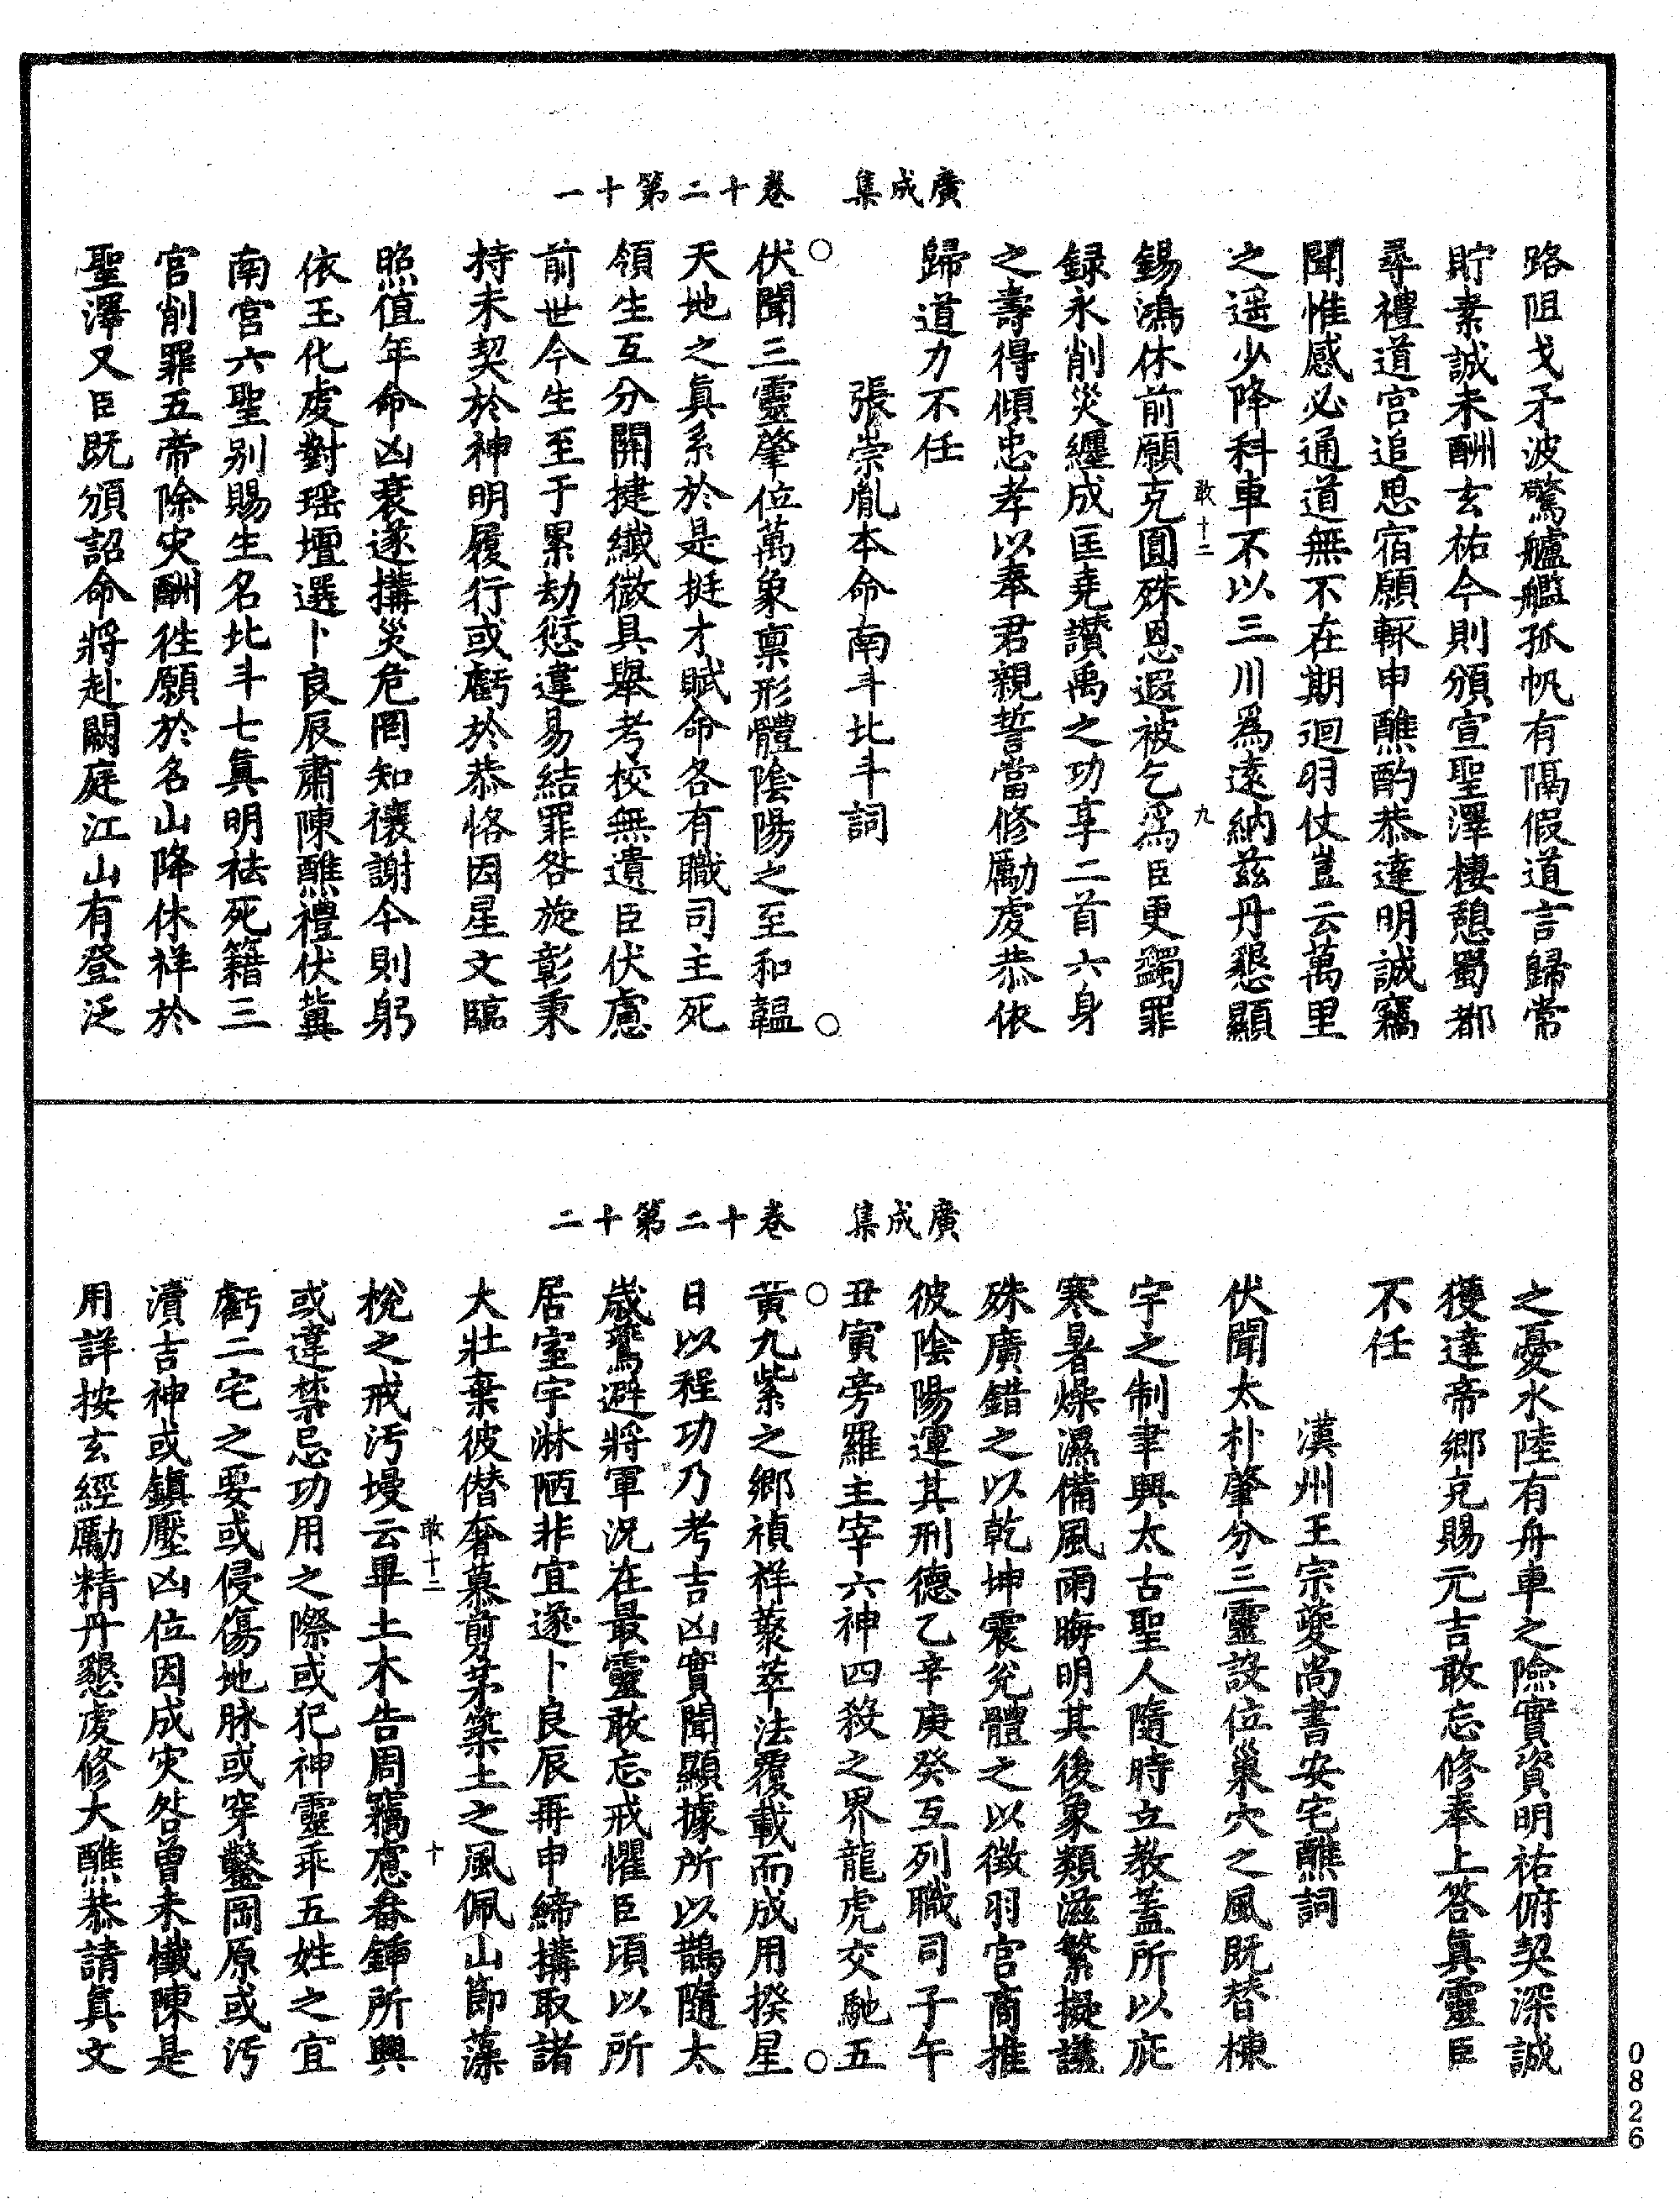 廣成集　卷十二第十一
路阻戈矛波驚艫艦孤帆有隔假道言歸常
貯素誠未酬玄祐今則頒宣聖澤棲憩蜀都
尋禮道宫追思宿願輒申醮酌恭達明誠竊
聞惟感必通道無不在期迴羽仗豈云萬里
之遥少降科車不以三川爲遠納兹丹懇顯
敢十二　九
錫鴻休前願克圓殊恩遐被乞爲臣更蠲罪
録永削災纏成匡堯讚禹之功享二首六身
之壽得傾忠孝以奉君親誓當修勵虔恭依
歸道力不任
張崇胤本命南斗北斗詞
伏聞三靈肇位萬象禀形體隂陽之至和韞
天地之眞系於是挺才賦命各有職司主死
領生互分開揵纖微具舉考校無遺臣伏慮
前世今生至于累劫愆違易結罪咎旋彰秉
持未契於神明履行或虧於恭恪因星文臨
照值年命凶衰遂搆災危罔知禳謝今則躬
依玉化虔對瑶壇選卜良辰肅陳醮禮伏冀
南宫六聖别賜生名北斗七眞明袪死籍三
官削罪五帝除灾酬徃願於名山降休祥於
聖澤又臣既頒詔命將赴闕庭江山有登泛
廣成集　卷十二第十二
之憂水陸有舟車之險實資明祐俯契深誠
獲達帝鄉克賜元吉敢忘修奉上答眞靈臣
不任
漢州王宗夔尚書安宅醮詞
伏聞太朴肇分三靈設位巢穴之風既替棟
宇之制聿興太古聖人隨時立教蓋所以庇
寒暑燥濕備風雨晦明其後象類滋繁擬議
殊廣錯之以乾坤震兊體之以徵羽宫商推
彼隂陽運其刑德乙辛庚癸互列職司子午
丑寅旁羅主宰六神四殺之界龍虎交馳五
黄九紫之鄉禎祥萃法覆載而成用揆星
日以程功乃考吉凶實聞顯據所以鵲隨太
歲鷰避將軍況在最靈敢忘戒懼臣頃以所
居室宇湫陋非宜遂卜良辰再申締搆取諸
大壯棄彼僣奢慕剪茅築土之風佩山節藻
敢十二　十
梲之戒汚墁云畢土木告周竊慮畚鍤所興
或違禁忌功用之際或犯神靈乖五姓之宜
虧二宅之要或侵傷地脉或穿鑿岡原或汚
瀆吉神或鎮壓凶位因成灾咎曾未懺陳是
用詳按玄經勵精丹懇虔修大醮恭請眞文
0826